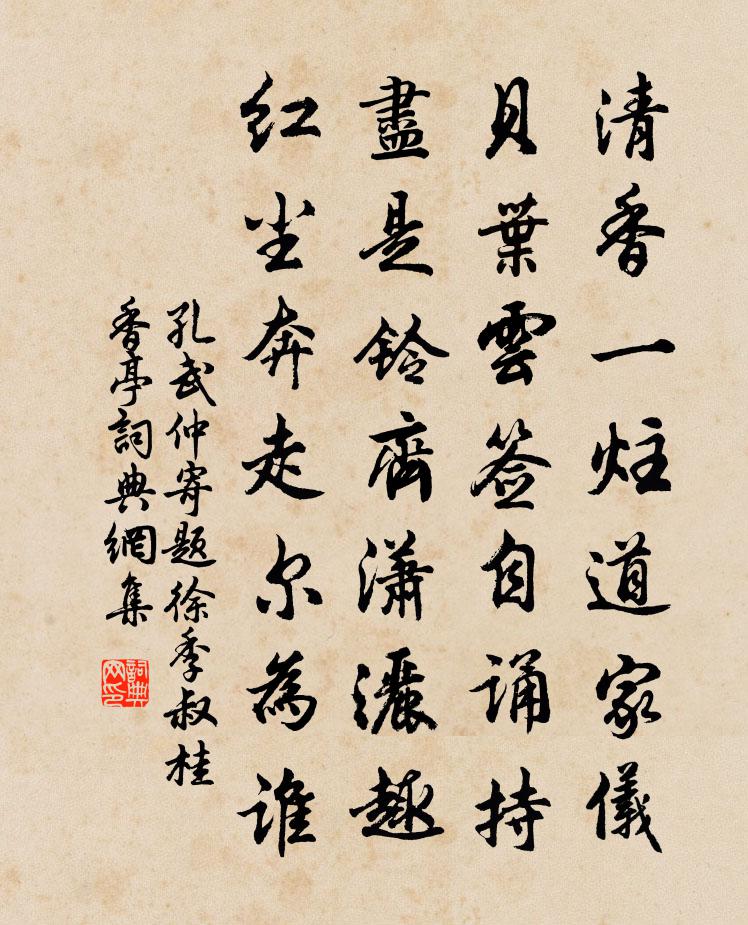 清香一炷道家儀
貝葉雲签自诵持
盡是鈴齋瀟灑趣
红尘奔走尔為谁
孔武仲寄題徐季叔桂
香亭詞典網集
詞典
网印